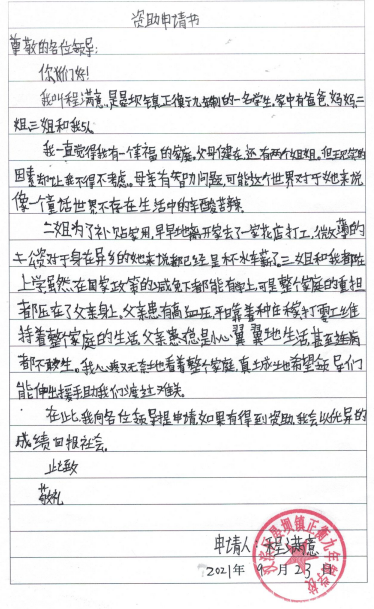 资助申请书
尊敬的各位领导:
你们好!
我叫程满意,是晏坝镇正衡九年制的一名学生,家中有爸爸、妈妈、二
姐、三姐和我5人
我一直觉得我有一个幸福的家庭,父母健在,还有两个姐姐。但现实的
因素却让我不得不考虑。母亲有智力问题,可能整个世界对于她来说
像一个童话世界不存在生活中的辛酸苦辣。
二姐为了补贴家用,早早地离开家去了一家花店打工,微薄的
工资对于身在异乡的她来说都已经是杯水车薪了。三姐和我都在
上学虽然在国家政策的减免下都能有书上,可是整个家庭的重担
都压在了父亲身上,父亲患有高血压,平时靠着种庄稼打零工维
持着整个家庭的生活,父亲总是小心翼翼地生活甚至连病
都不敢生。我心疼又无奈地看着整个家庭,真诚地希望领导们
能伸出援手助我们渡过难关。
在此,我向各位领导提申请如果有得到资助,我会以优异的
成绩回报社会。
此致
敬礼
申请人:程满意
2021年9月23日
晏坝镇正衡九年制学校